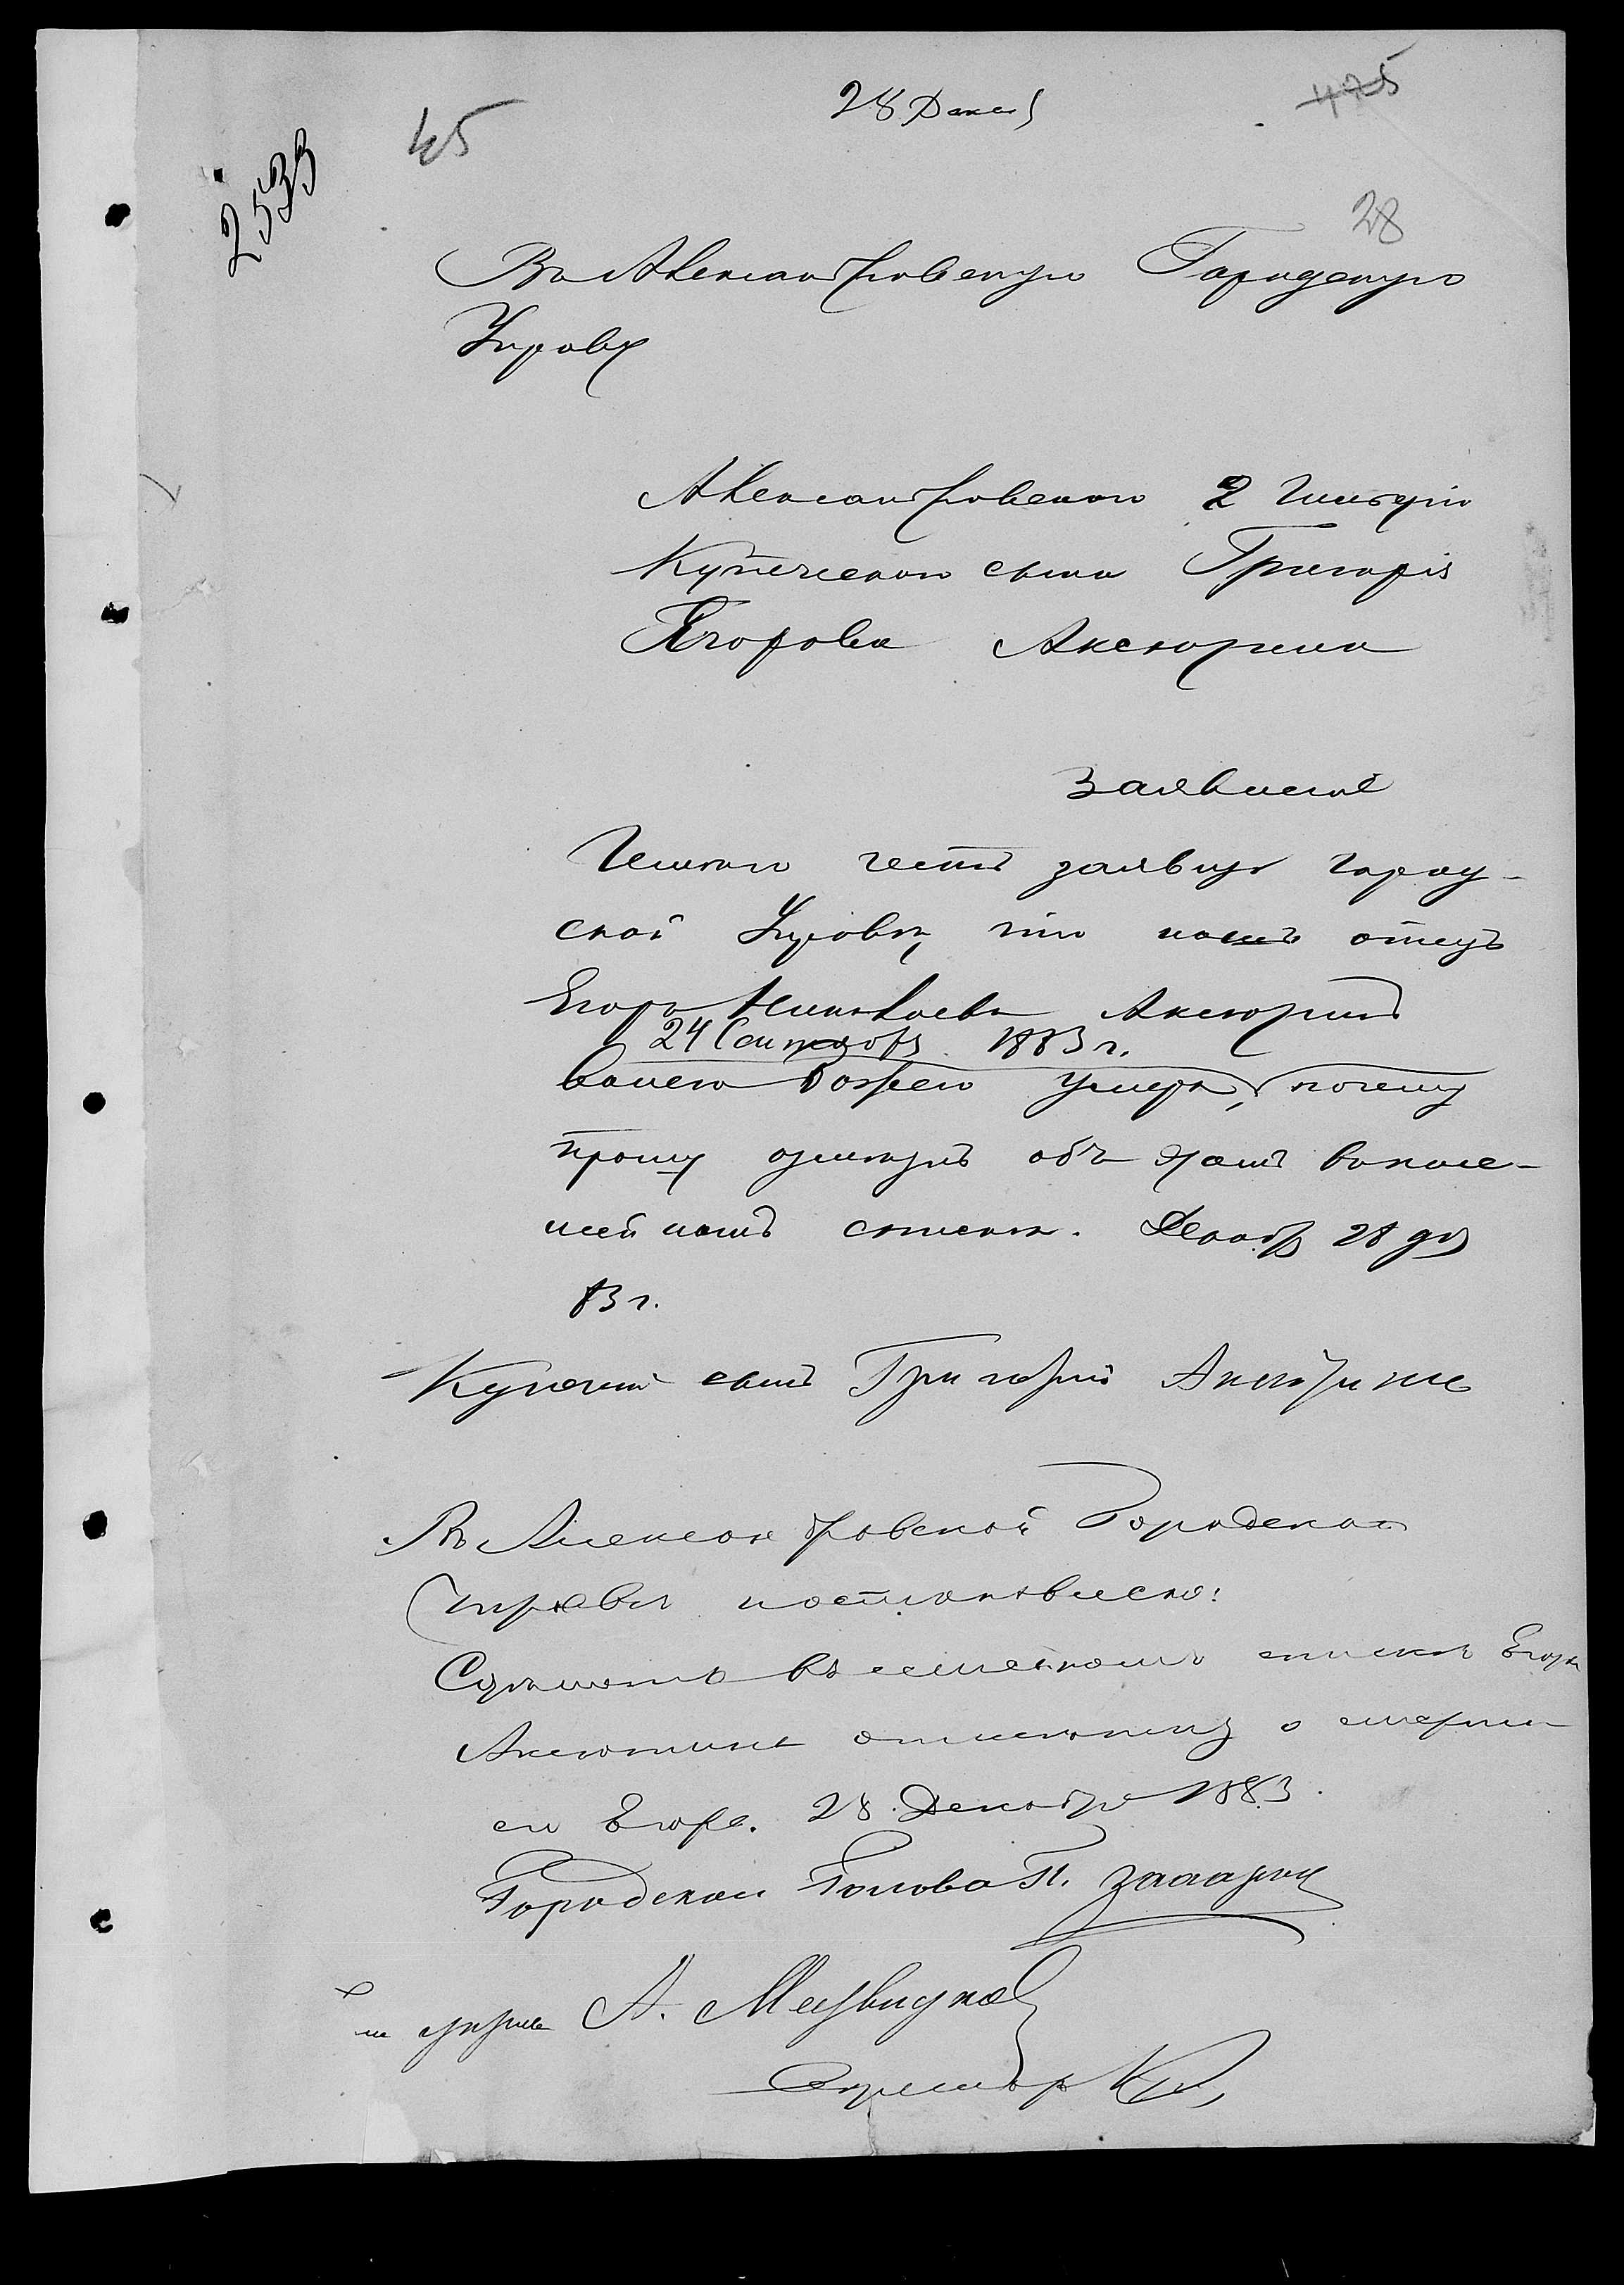 28 Декаб
475
45
2533
28
Въ Александровскую Городскую
Управу
Александровскаго 2 Гильдіи
Купеческаго сына Григорія
Егорова Аксюрина
Заявленіе
Имѣю честь заявить Город-
ской Управѣ, что нашъ отецъ
Егоръ Николаевъ Аксюринъ
24 Сентября 1883 г.
волею Божею умеръ, почему
прошу объ
нашъ списокъ. Декабр 28 дня
83 г.
Купечий сынъ Григорій Аксюринъ
Въ Александровской Городской
Управѣ постановлено:
въ семейномъ спискѣ Егора
Аксютина отмѣтку о смерти
его Егора. 28 Декабря 1883.
Городской Голова П.
А. Медвидковъ
Секретарь